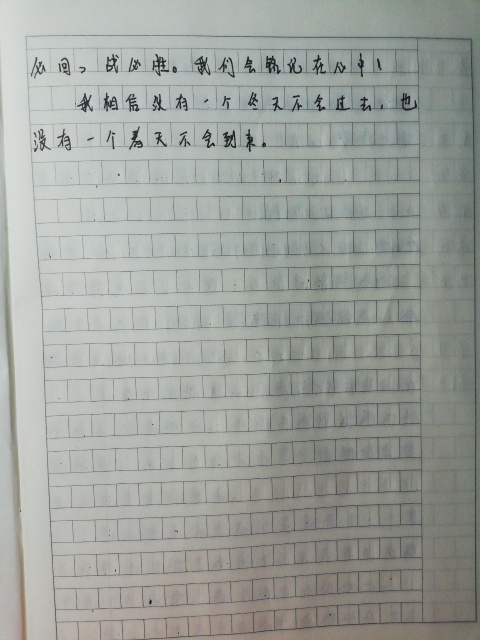 必回，战必胜。我们会铭记在心中！
我相信没有一个冬天不会过去，也
没有一个春天不会到来。